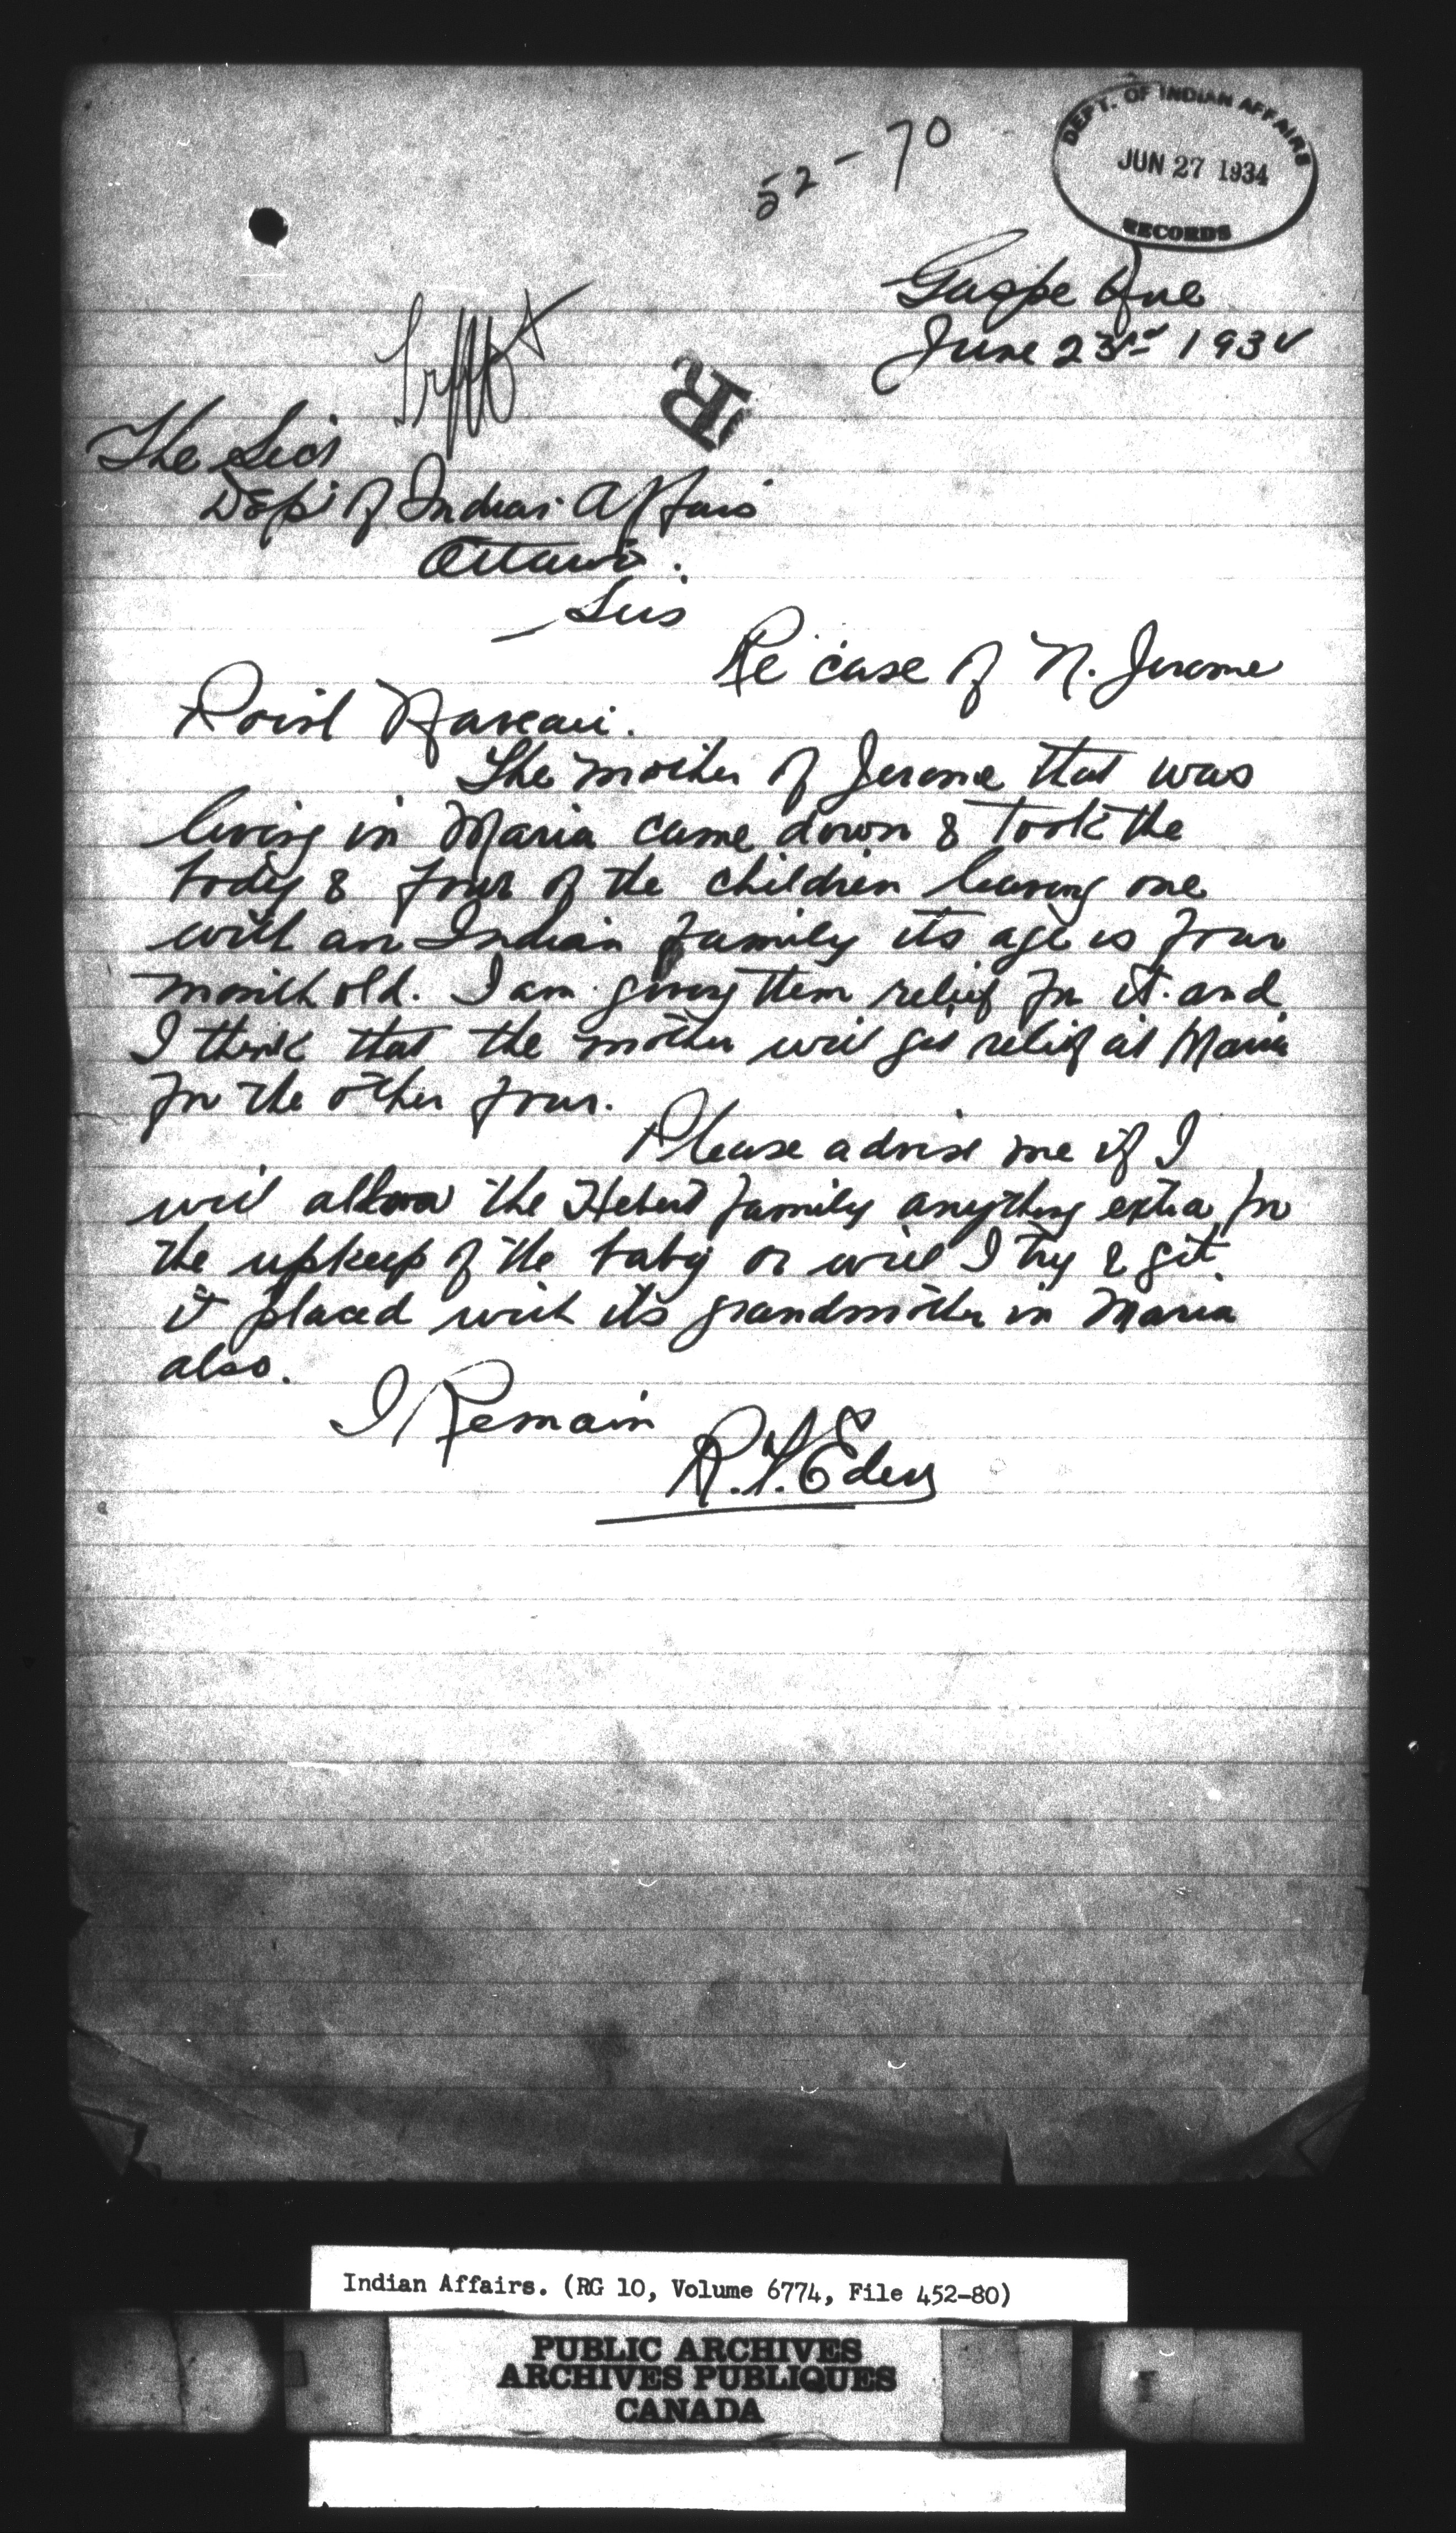 52-70
DEPT. OF INDIAN AFFAIRS
JUN 27 1934
RECORDS
Gaspe Que
June 23rd 1934
R
The Sec'y
Dep't of Indian Affairs
Ottawa.
Sirs
Re case of N. Jerome
Point Naveau.
The mother of Jerome that was
living in Maria came down & took the
body & four of the children leaving one
with an Indian family its age is four
month old. I am giving them relief for it and
I think that the mother will get relief at Maria
for the other four.
Please advise me if I
will allow the Hebert family anything extra for
the upkeep of the baby or will I try & get
it placed with its grandmother in Maria
also.
I Remain
R. Eden
Indian Affairs. (RG 10, Volume 6774, File 452-80)
PUBLIC ARCHIVES
ARCHIVES PUBLIQUES
CANADA